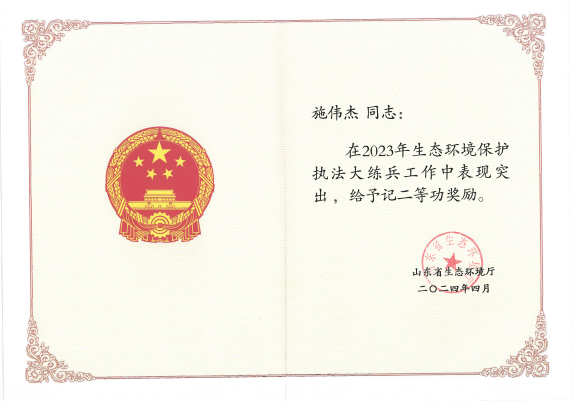 施伟杰 同志：
在2023年生态环境保护
执法大练兵工作中表现突
出，给予记二等功奖励。
山东省生态环境厅
二〇二四年四月